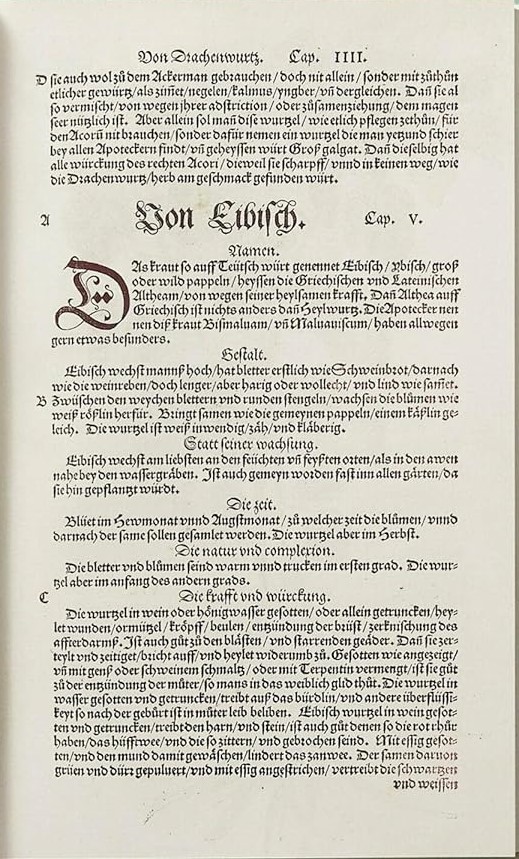 Von Drachenwurtz. Cap. IIII.
D sie auch wol zů dem Ackerman gebrauchen / doch nit allein / sonder mit zůthůn
etlicher gewürtz / als zim̃et / negelen / kalmus / yngber / vn̄ dergleichen. Dan̄ sie al
so vermischt / von wegen jhrer adstriction / oder zůsamenziehung / dem magen
seer nützlich ist. Aber allein sol man̄ dise wurtzel / wie etlich pflegen zethůn / für
den Acorū nit brauchen / sonder dafür nemen ein wurtzel die man yetzund schier
bey allen Apoteckern findt / vn̄ geheyssen würt Groß galgat. Dan̄ dieselbig hat
alle würckung des rechten Acori / dieweil sie scharpff / vnnd in keinen weg / wie
die Drachenwurtz / herb am geschmack gefunden würt.
A Von Eibisch. Cap. V.
Namen.
DAs kraut so auff Teütsch würt genennet Eibisch / Ybisch / groß
oder wild pappeln / heyssen die Griechischen vnd Lateinischen
Altheam / von wegen seiner heylsamen krafft. Dan̄ Althea auff
Griechisch ist nichts anders dan̄ Heylwurtz. Die Apotecker nen
nen diß kraut Bismaluam / vn̄ Maluauiscum / haben allwegen
gern etwas besunders.
Gestalt.
Eibisch wechst manns hoch / hat bletter erstlich wie Schweinbrot / darnach
wie die weinreben / doch lenger / aber harig oder wollecht / vnd lind wie sam̃et.
B Zwüschen den weychen blettern vnd runden stengeln / wachsen die blůmen wie
weiß rößlin herfür. Bringt samen wie die gemeynen pappeln / einem käßlin ge-
leich. Die wurtzel ist weiß inwendig / zäh / vnd kläberig.
Statt seiner wachsung.
Eibisch wechst am liebsten an den feüchten vn̄ feyßten orten / als in den awen
nahe bey den wassergräben. Ist auch gemeyn worden fast inn allen gärten / da
sie hin gepflantzt würdt.
Die zeit.
Blüet im Hewmonat vnnd Augstmonat / zů welcher zeit die blůmen / vnnd
darnach der same sollen gesamlet werden. Die wurtzel aber im Herbst.
Die natur vnd complexion.
Die bletter vnd blůmen seind warm vnnd trucken im ersten grad. Die wur-
tzel aber im anfang des andern grads.
C Die krafft vnd würckung.
Die wurtzel in wein oder hönigwasser gesotten / oder allein getruncken / hey-
let wunden / ormützel / kröpff / beulen / entzündung der brüst / zerknischung des
affterdarms. Ist auch gůt zů den blästen / vnd starrenden geäder. Dan̄ sie zer-
teylt vnd zeitiget / bricht auff / vnd heylet widerumb zů. Gesotten wie angezeigt /
vn̄ mit genß oder schweinem schmaltz / oder mit Terpentin vermengt / ist sie gůt
zů der entzündung der můter / so mans in das weiblich glid thůt. Die wurtzel in
wasser gesotten vnd getruncken / treibt auß das bürdlin / vnd andere überflüssi-
keyt so nach der gebürt ist in můter leib beliben. Eibisch wurtzel in wein gesot-
ten vnd getruncken / treibt den harn / vnd stein / ist auch gůt denen so die rot rhůr
haben / das hüfftwee / vnd die so zittern / vnd gebrochen seind. Mit essig gesot-
ten / vnd den mund damit gewäschen / lindert das zanwee. Der samen daruon
grüen vnd dürr gepuluert / vnd mit essig angestrichen / vertreibt die schwartzen
vnd weissen